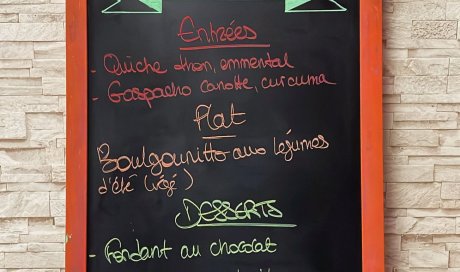 Entrées
- Quiche thon, emmental
- Gaspacho carotte, curcuma
Plat
Boulgouritto aux légumes
d'été (végé)
DESSERTS
- Fondant au chocolat